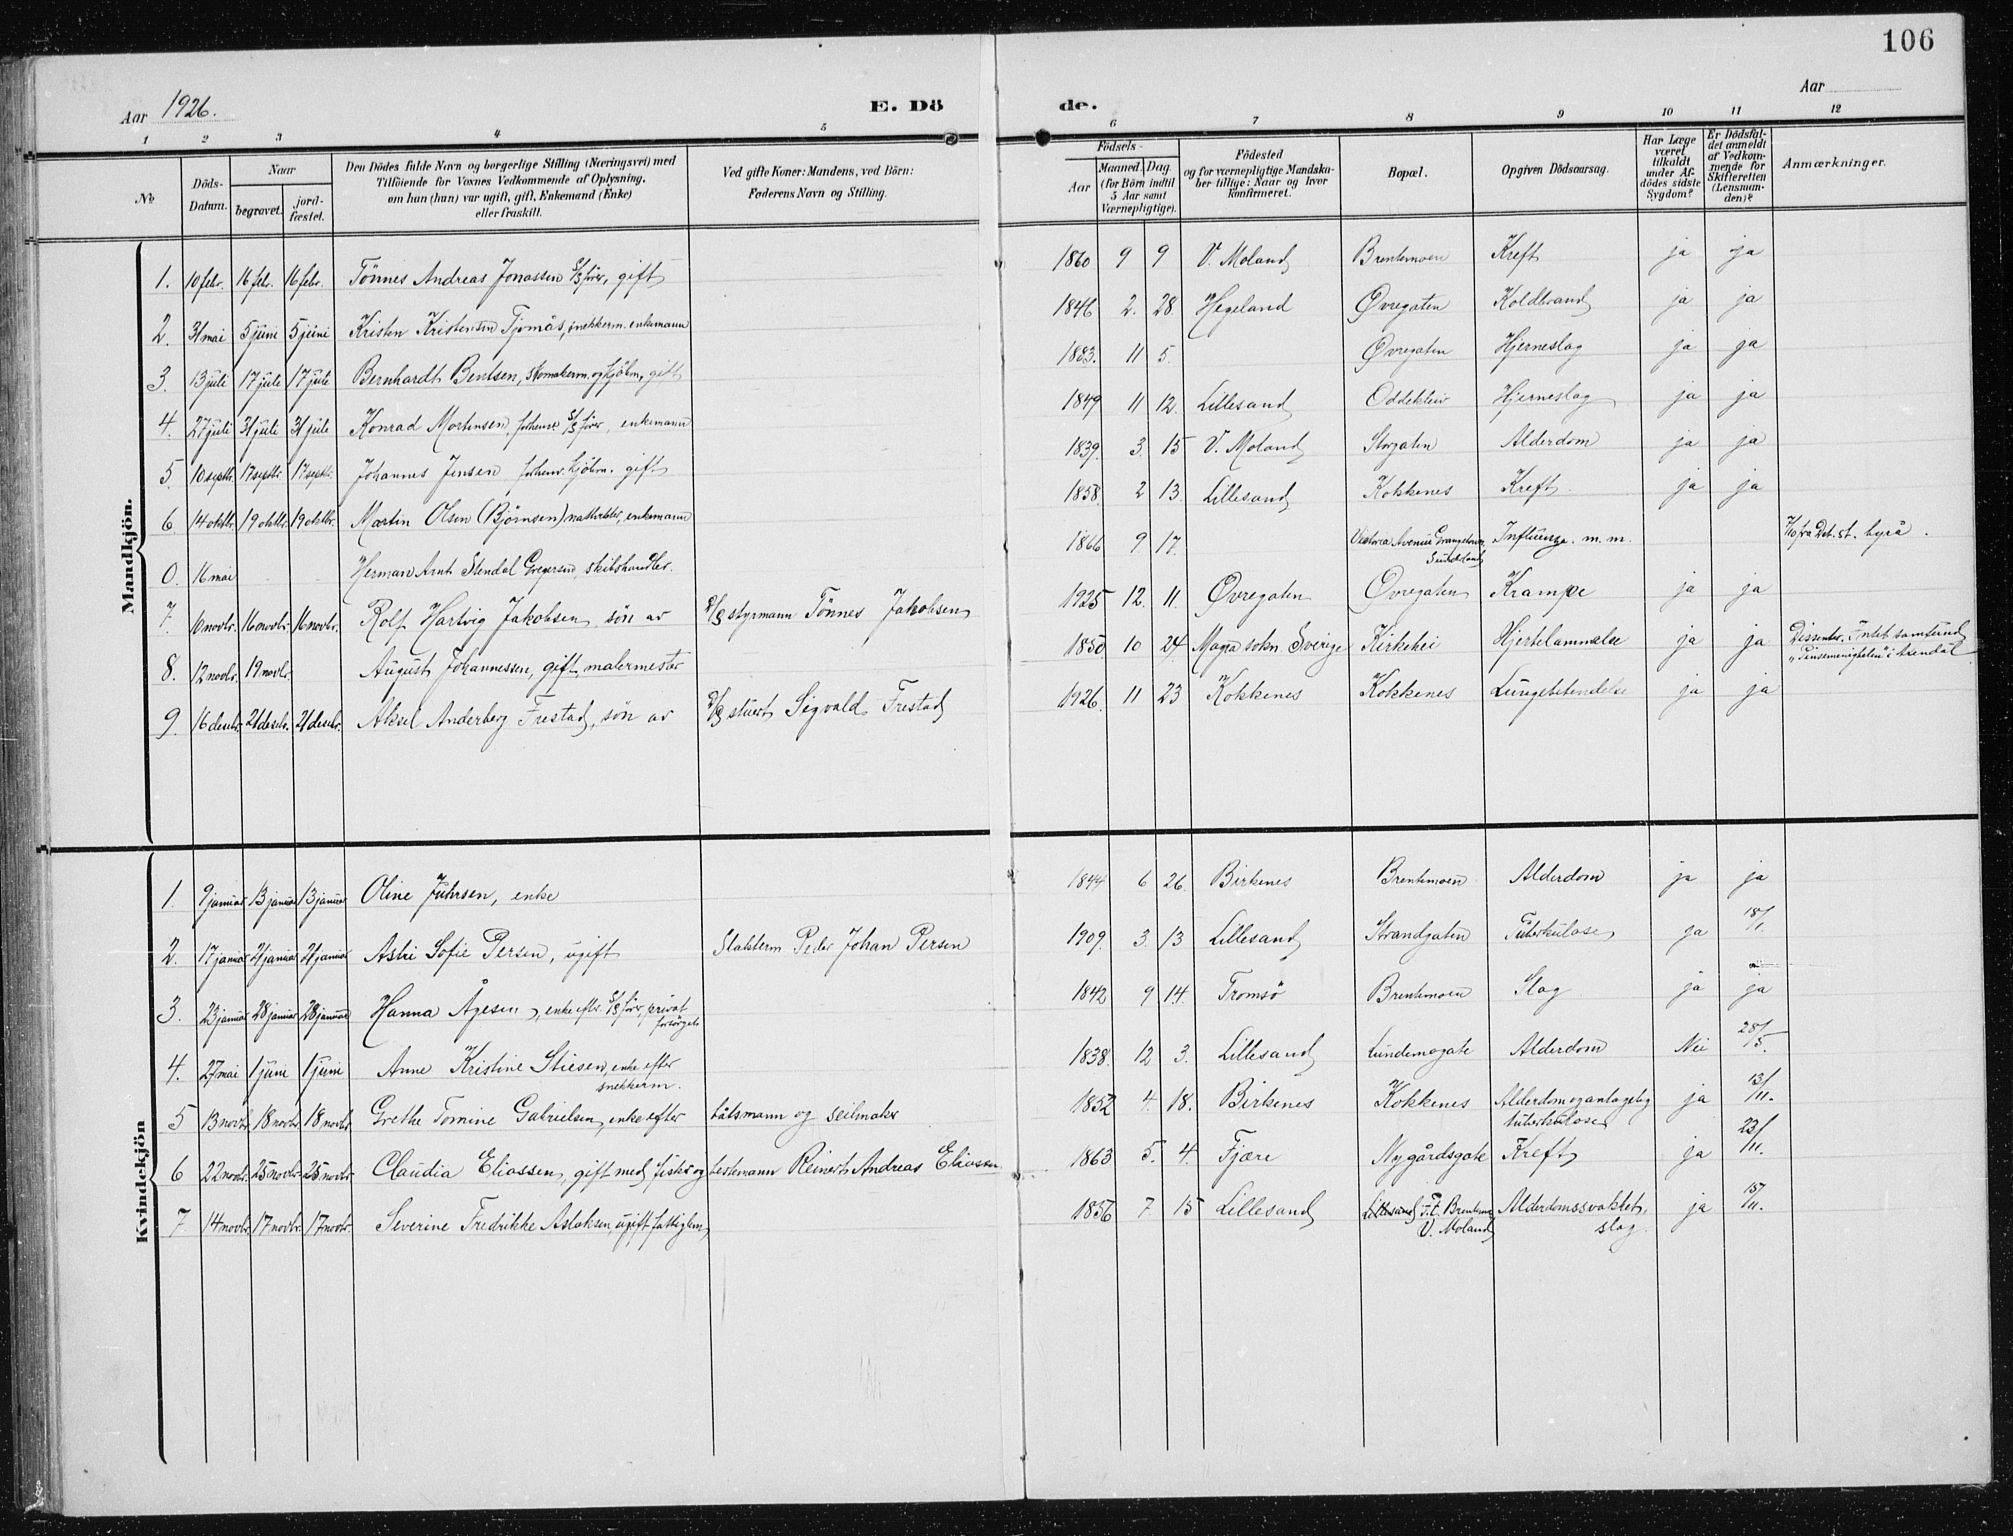 106
Aar 1926.
E. Dö de.
Aar
1 2 3 4 5 6 7 8 9 10 11 12
№
Döds-Datum.
Naar
begravet. jordfæstet.
Den Dödes fulde Navn og borgerlige Stilling (Næringsvei) med
Tilföiende for Voxnes Vedkommende af Oplysning,
om han (hun) var ugift, gift, Enkemand (Enke)
eller fraskilt.
Ved gifte Koner: Mandens, ved Börn:
Faderens Navn og Stilling.
Födsels-
Aar
Maaned. Dag.
(for Börn indtil
5 Aar samt
Værnepligtige).
Födested
og for værnepligtige Mandskaber tillige: Naar og hvor
konfirmeret.
Bopæl.
Opgiven Dödsaarsag.
Har Læge
været
tilkaldt
under Afdödes sidste
Sygdom?
Er Dödsfaldet anmeldt
af Vedkommende for
Skifteretten
(Lensmanden)?
Anmærkninger.
Mandkjön.
1. 10 febr. 16 febr. 16 febr. Tönnes Andreas Jonassen S/S förer, gift 1860 9 9 V. Moland Brentemoen Kreft ja ja
2. 31 mai 5 juni 5 juni Kristen Kristensen Tjomås, snekkerm. enkemann 1846 2. 28. Hegeland Øvregaten Koldbrand ja ja
3. 13 juli 17 juli 17 juli Bernhardt Bentsen, skomakerm. og kjöbm., gift 1883. 11 5. Øvregaten Hjerneslag ja ja
4. 27 juli 31 juli 31 juli Konrad Mortensen, forhenv. S/S förer, enkemann 1849 11 12. Lillesand Oddekleiv Hjerneslag ja ja
5. 10 septbr. 17 septbr. 17 septbr. Johannes Jensen forhenv. kjöbm. gift 1839. 3. 15 V. Moland Storgaten Alderdom ja ja
6. 14 oktbr. 19 oktbr. 19 oktbr. Martin Olsen (Björnsen) nattvekter, enkemann 1858. 2 13. Lillesand Kokkenes Kreft. ja ja
0. 16 mai Herman Arnt Stendal Gregersen, skibshandler. 1866 9 17. Victoria Avenue Grangetown Sunderland Influenza. m. m. fra Det. st. byrå.
7. 10 novbr. 16 novbr. 16 novbr. Rolf Hartvig Jakobsen, sön av D/S styrmann Tönnes Jakobsen 1925 12. 11. Øvregaten Øvregaten Krampe ja ja
8. 12 novbr. 19 novbr. August Johannessen, gift, malermester 1850 10 24. Magra sokn. Sverige Kirkehei Hjertelammelse ja ja Dissenter. Intet samfund „Pinsemenigheten" i Arendal
9. 16 desbr. 21 desbr. 21 desbr. Aksel Anderberg Frestad, sön av D/S stuert Sigvald Frestad 1926. 11 23 Kokkenes Kokkenes Lungebetendelse ja ja
Kvindekjön
1. 9 januar 13 januar 13 januar Oline Juhrsen, enke 1844 6 26. Birkenes Brentemoen Alderdom ja ja
2. 17 januar 21 januar 21 januar Astri Sofie Persen, ugift Slakterm Peder Johan Persen 1909. 3. 13 Lillesand Strandgaten Tuberkulose ja 18/1.
3. 23 januar 28 januar 28 januar Hanna Ågesen, enke efter S/S förer, privat forsörget 1842 9 14. Tromsö Brentemoen Slag ja ja
4. 27 mai 1 juni 1 juni Anne Kristine Stiesen, enke efter snekkerm. 1838. 12 3. Lillesand Lundemogate Alderdom Nei 28/5.
5 13 novbr. 18 novbr. 18 novbr. Grethe Tomine Gabrielsen, enke efter båtsmann og seilmaker 1852 4. 18. Birkenes Kokkenes Alderdom og antagelig tuberkulose ja 13/11.
6 22 novbr. 25 novbr. 25 novbr. Claudia Eliassen, gift med fisker og lastemann Reinert Andreas Eliassen 1863 5. 4. Fjære Nygårdsgate Kreft ja 23/11.
7 14 novbr. 17 novbr. 17 novbr. Severine Fredrikke Aslaksen, ugift fattiglem, 1856 7. 15 Lillesand Lillesand F.t. Brentemo V. Moland Alderdomssvakhet, slag. ja 15/11.